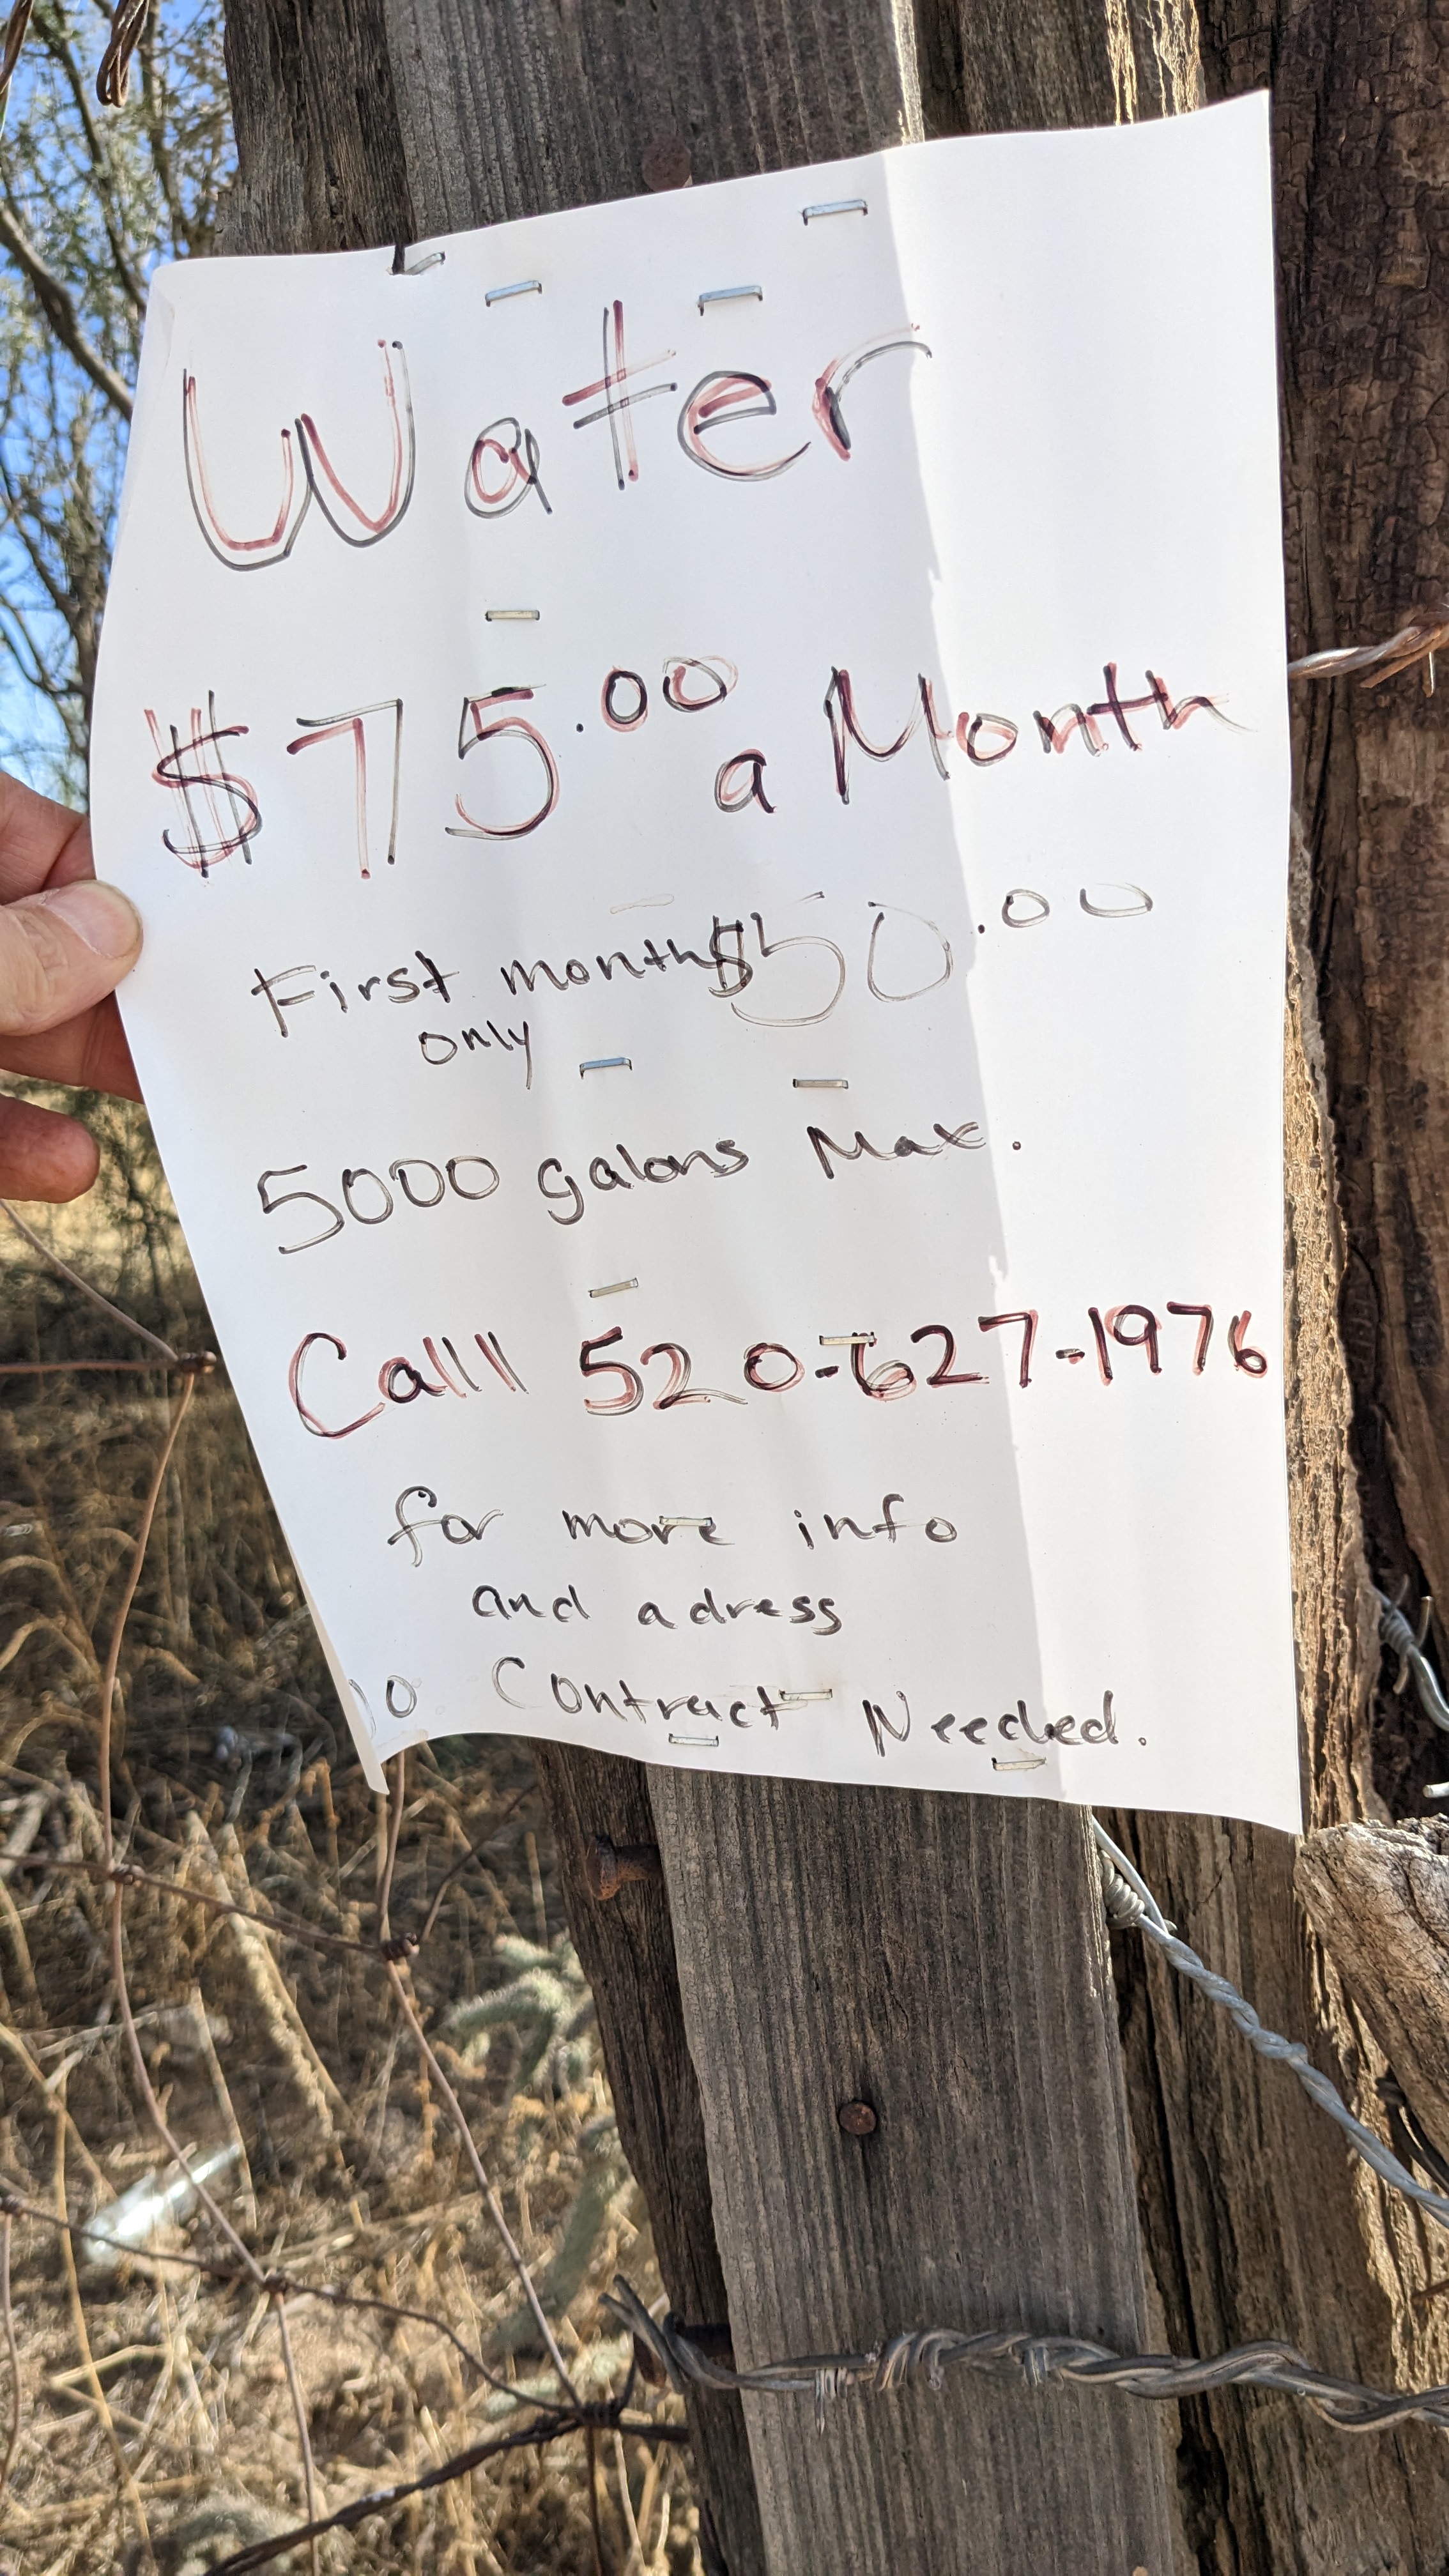 Water
$75.00 a Month
First month $50.00
only
5000 galons Max.
Call 520-627-1976
for more info
and adress
Contract Needed.